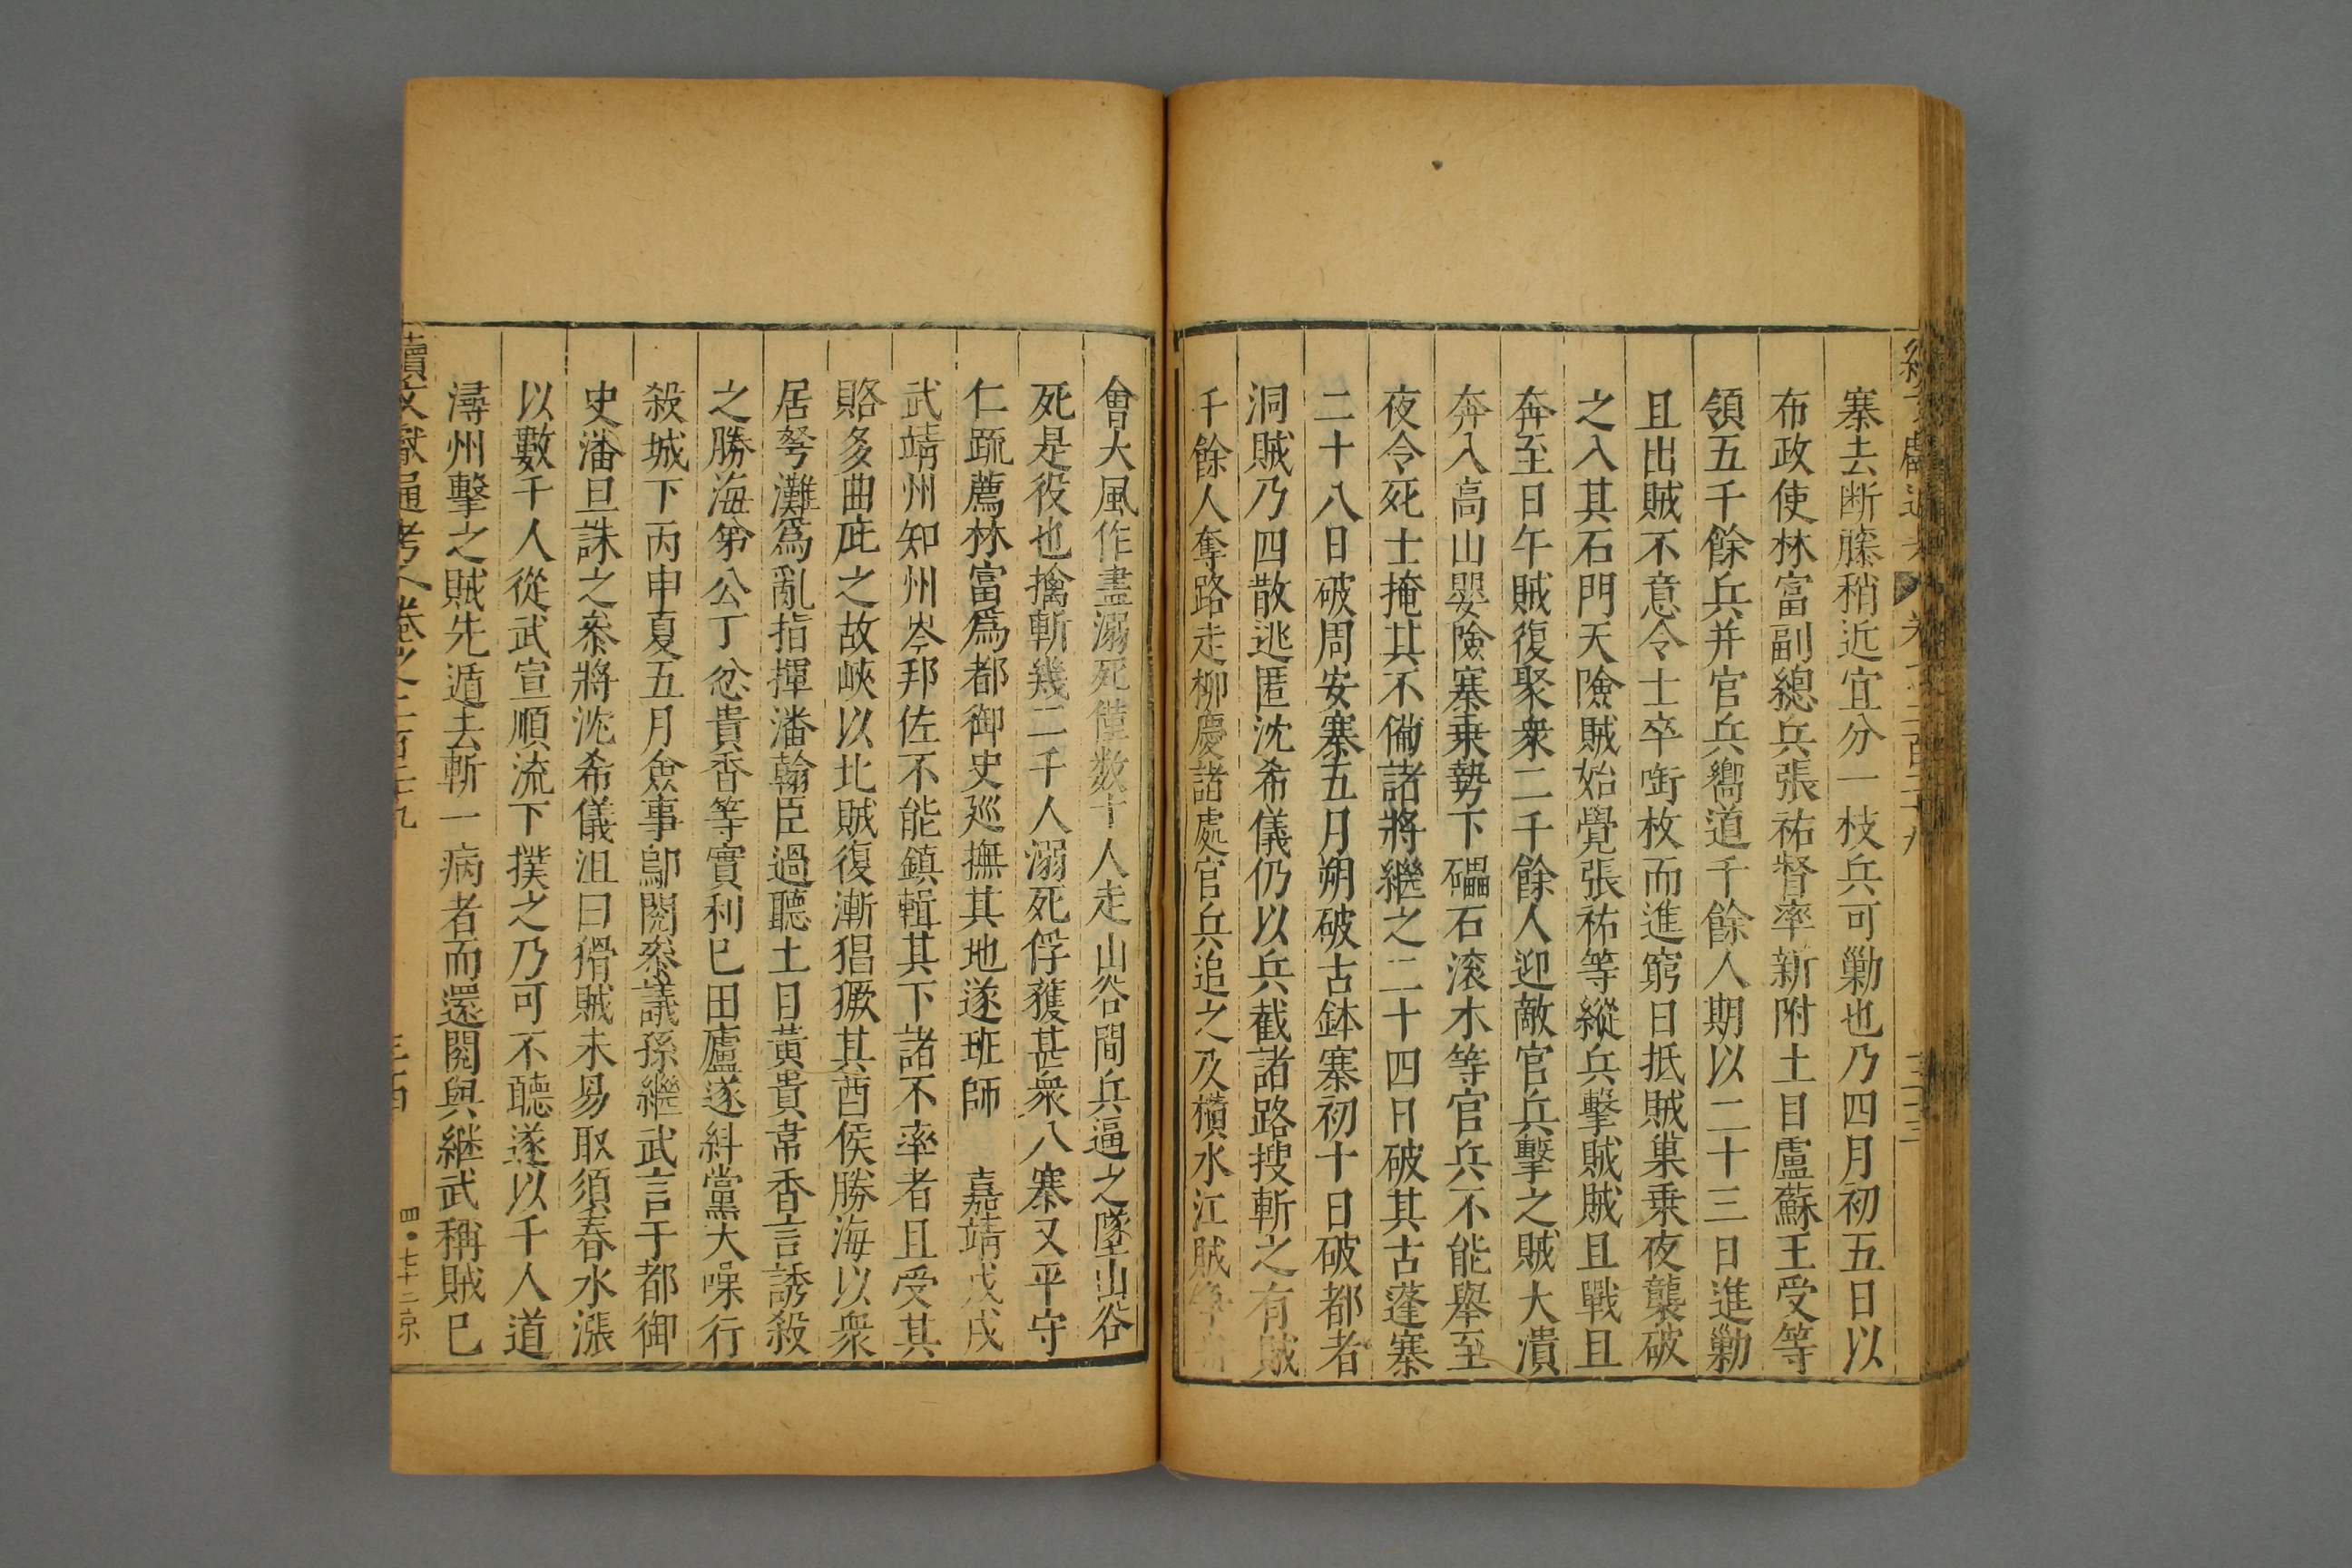 寨去断藤稍近宜分一枝兵可勦也乃四月初五日以
布政使林富副總兵張祐督率新附土目盧蘇王受等
領五千餘兵并官兵嚮道千餘人期以二十三日進勦
且出賊不意令士卒啣枚而進窮日抵賊巢乗夜襲破
之入其石門天險賊始覺張祐等縱兵擊賊賊且戰且
奔至日午賊復聚衆二千餘人迎敵官兵擊之賊大潰
奔入高山嬰險寨乗勢下礧石滚木等官兵不能舉至
夜令死士掩其不備諸將繼之二十四日破其古蓬寨
二十八日破周安寨五月朔破古鉢寨初十日破都者
洞賊乃四散逃匿沈希儀仍以兵截諸路搜斬之有賊
千餘人奪路走柳慶諸處官兵追之及橫水江賊爭
會大風作盡溺死僅数十人走山谷間兵逼之墜山谷
死是役也擒斬幾二千人溺死俘獲甚衆八寨又平守
仁疏薦林富爲都御史廵撫其地遂班師　嘉靖戊戌
武靖州知州岑邦佐不能鎮輯其下諸不率者且受其
賂多曲庇之故峽以北賊復漸猖獗其酋侯勝海以衆
居弩灘爲亂指揮潘翰臣過聽土目黃貴韋香言誘殺
之勝海弟公丁忿貴香等實利巳田廬遂糾黨大噪行
殺城下丙申夏五月僉事鄔閱叅議孫繼武言于都御
史潘旦誅之叅將沈希儀沮曰猾賊未易取須春水漲
以數千人從武宣順流下撲之乃可不聽遂以千人道
潯州擊之賊先遁去斬一病者而還閱與継武稱賊巳
續文獻通考 卷之二百三十九
三西
四·七十二京